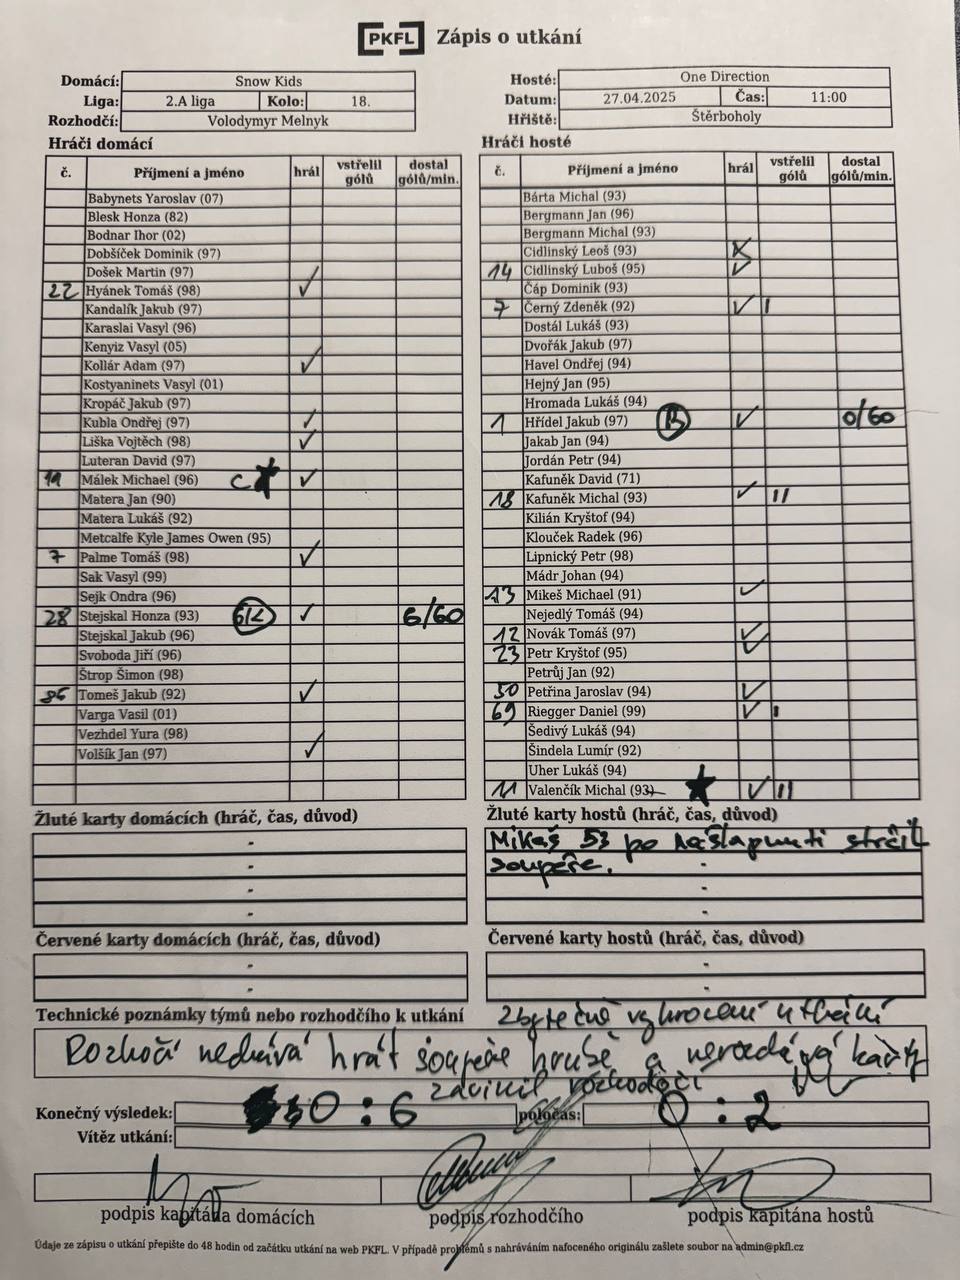 PKFL Zápis o utkání
Domácí: Snow Kids
Liga: 2.A liga Kolo: 18.
Rozhodčí: Volodymyr Melnyk
Hosté: One Direction
Datum: 27.04.2025 Čas: 11:00
Hřiště: Štěrboholy
Hráči domácí
č. Příjmení a jméno hrál vstřelil gólů dostal gólů/min.
Babynets Yaroslav (07)
Blesk Honza (82)
Bodnar Ihor (02)
Dobšíček Dominik (97)
Došek Martin (97)
22 Hyánek Tomáš (98) ✓
Kandalík Jakub (97)
Karaslai Vasyl (96)
Kenyiz Vasyl (05)
Kollár Adam (97) ✓
Kostyaninets Vasyl (01)
Kropáč Jakub (97)
Kubla Ondřej (97) ✓
Liška Vojtěch (98) ✓
Luteran David (97)
19 Málek Michael (96) C ★ ✓
Matera Jan (90)
Matera Lukáš (92)
Metcalfe Kyle James Owen (95)
7 Palme Tomáš (98) ✓
Sak Vasyl (99)
Sejk Ondra (96)
28 Stejskal Honza (93) GK ✓ 6/60
Stejskal Jakub (96)
Svoboda Jiří (96)
Štrop Šimon (98)
Tomeš Jakub (92) ✓
Varga Vasil (01)
Vezhdel Yura (98)
Volšík Jan (97) ✓
Hráči hosté
č. Příjmení a jméno hrál vstřelil gólů dostal gólů/min.
Bárta Michal (93)
Bergmann Jan (96)
Bergmann Michal (93)
Cidlinský Leoš (93)
14 Cidlinský Luboš (95) ✓
Čáp Dominik (93)
7 Černý Zdeněk (92) ✓ I
Dostál Lukáš (93)
Dvořák Jakub (97)
Havel Ondřej (94)
Hejný Jan (95)
Hromada Lukáš (94)
1 Hřídel Jakub (97) B ✓ 0/60
Jakab Jan (94)
Jordán Petr (94)
Kafuněk David (71)
18 Kafuněk Michal (93) ✓ II
Kilián Kryštof (94)
Klouček Radek (96)
Lipnický Petr (98)
Mádr Johan (94)
13 Mikeš Michael (91) ✓
Nejedlý Tomáš (94)
12 Novák Tomáš (97) ✓
23 Petr Kryštof (95) ✓
Petrůj Jan (92)
50 Petřina Jaroslav (94) ✓
69 Riegger Daniel (99) ✓ I
Šedivý Lukáš (94)
Šindela Lumír (92)
Uher Lukáš (94)
11 Valenčík Michal (93) ★ ✓ II
Žluté karty domácích (hráč, čas, důvod)
-
-
-
-
Žluté karty hostů (hráč, čas, důvod)
Mikeš 53 po našlapnutí strčil
soupeře.
-
-
Červené karty domácích (hráč, čas, důvod)
-
-
Červené karty hostů (hráč, čas, důvod)
-
-
Technické poznámky týmů nebo rozhodčího k utkání
zbytečné vyhrocení utkání
Rozhočí nechává hrát soupeře hrubě a nerozdává karty
zavinil rozhodčí
Konečný výsledek: 0 : 6 poločas: 0 : 2
Vítěz utkání:
podpis kapitána domácích podpis rozhodčího podpis kapitána hostů
Údaje ze zápisu o utkání přepište do 48 hodin od začátku utkání na web PKFL. V případě problémů s nahráváním nafoceného originálu zašlete soubor na admin@pkfl.cz